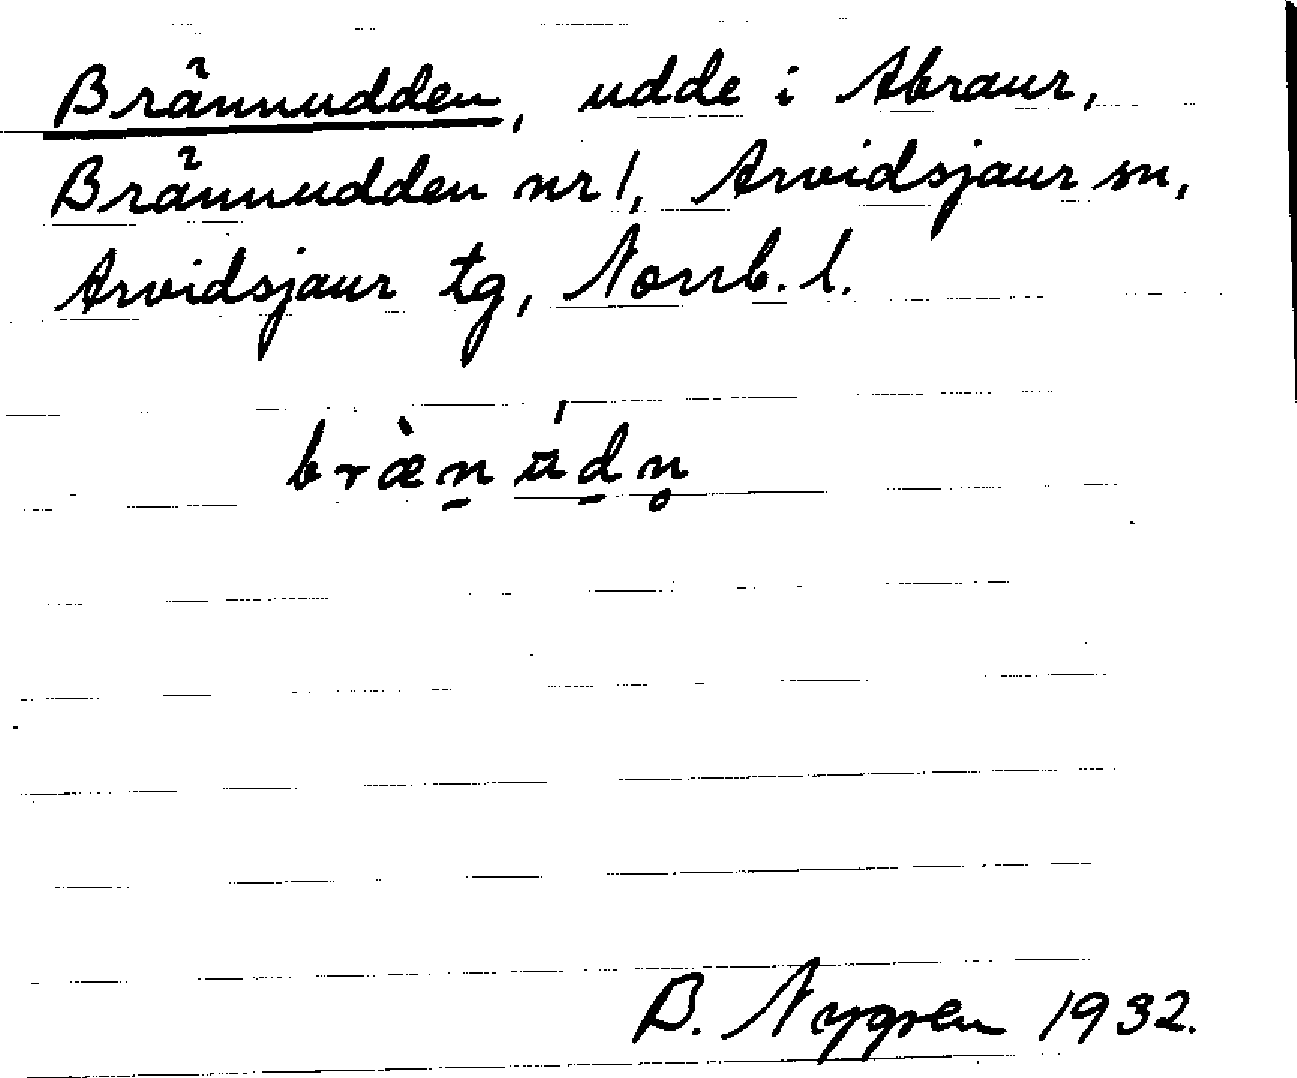 Brännudden, udde i Abraur,
Brännudden nr 1, Arvidsjaur sn,
Arvidsjaur tg, Norrb. l.
bræ̀n̠ u̇́d̠n̥
B. Nygren 1932.